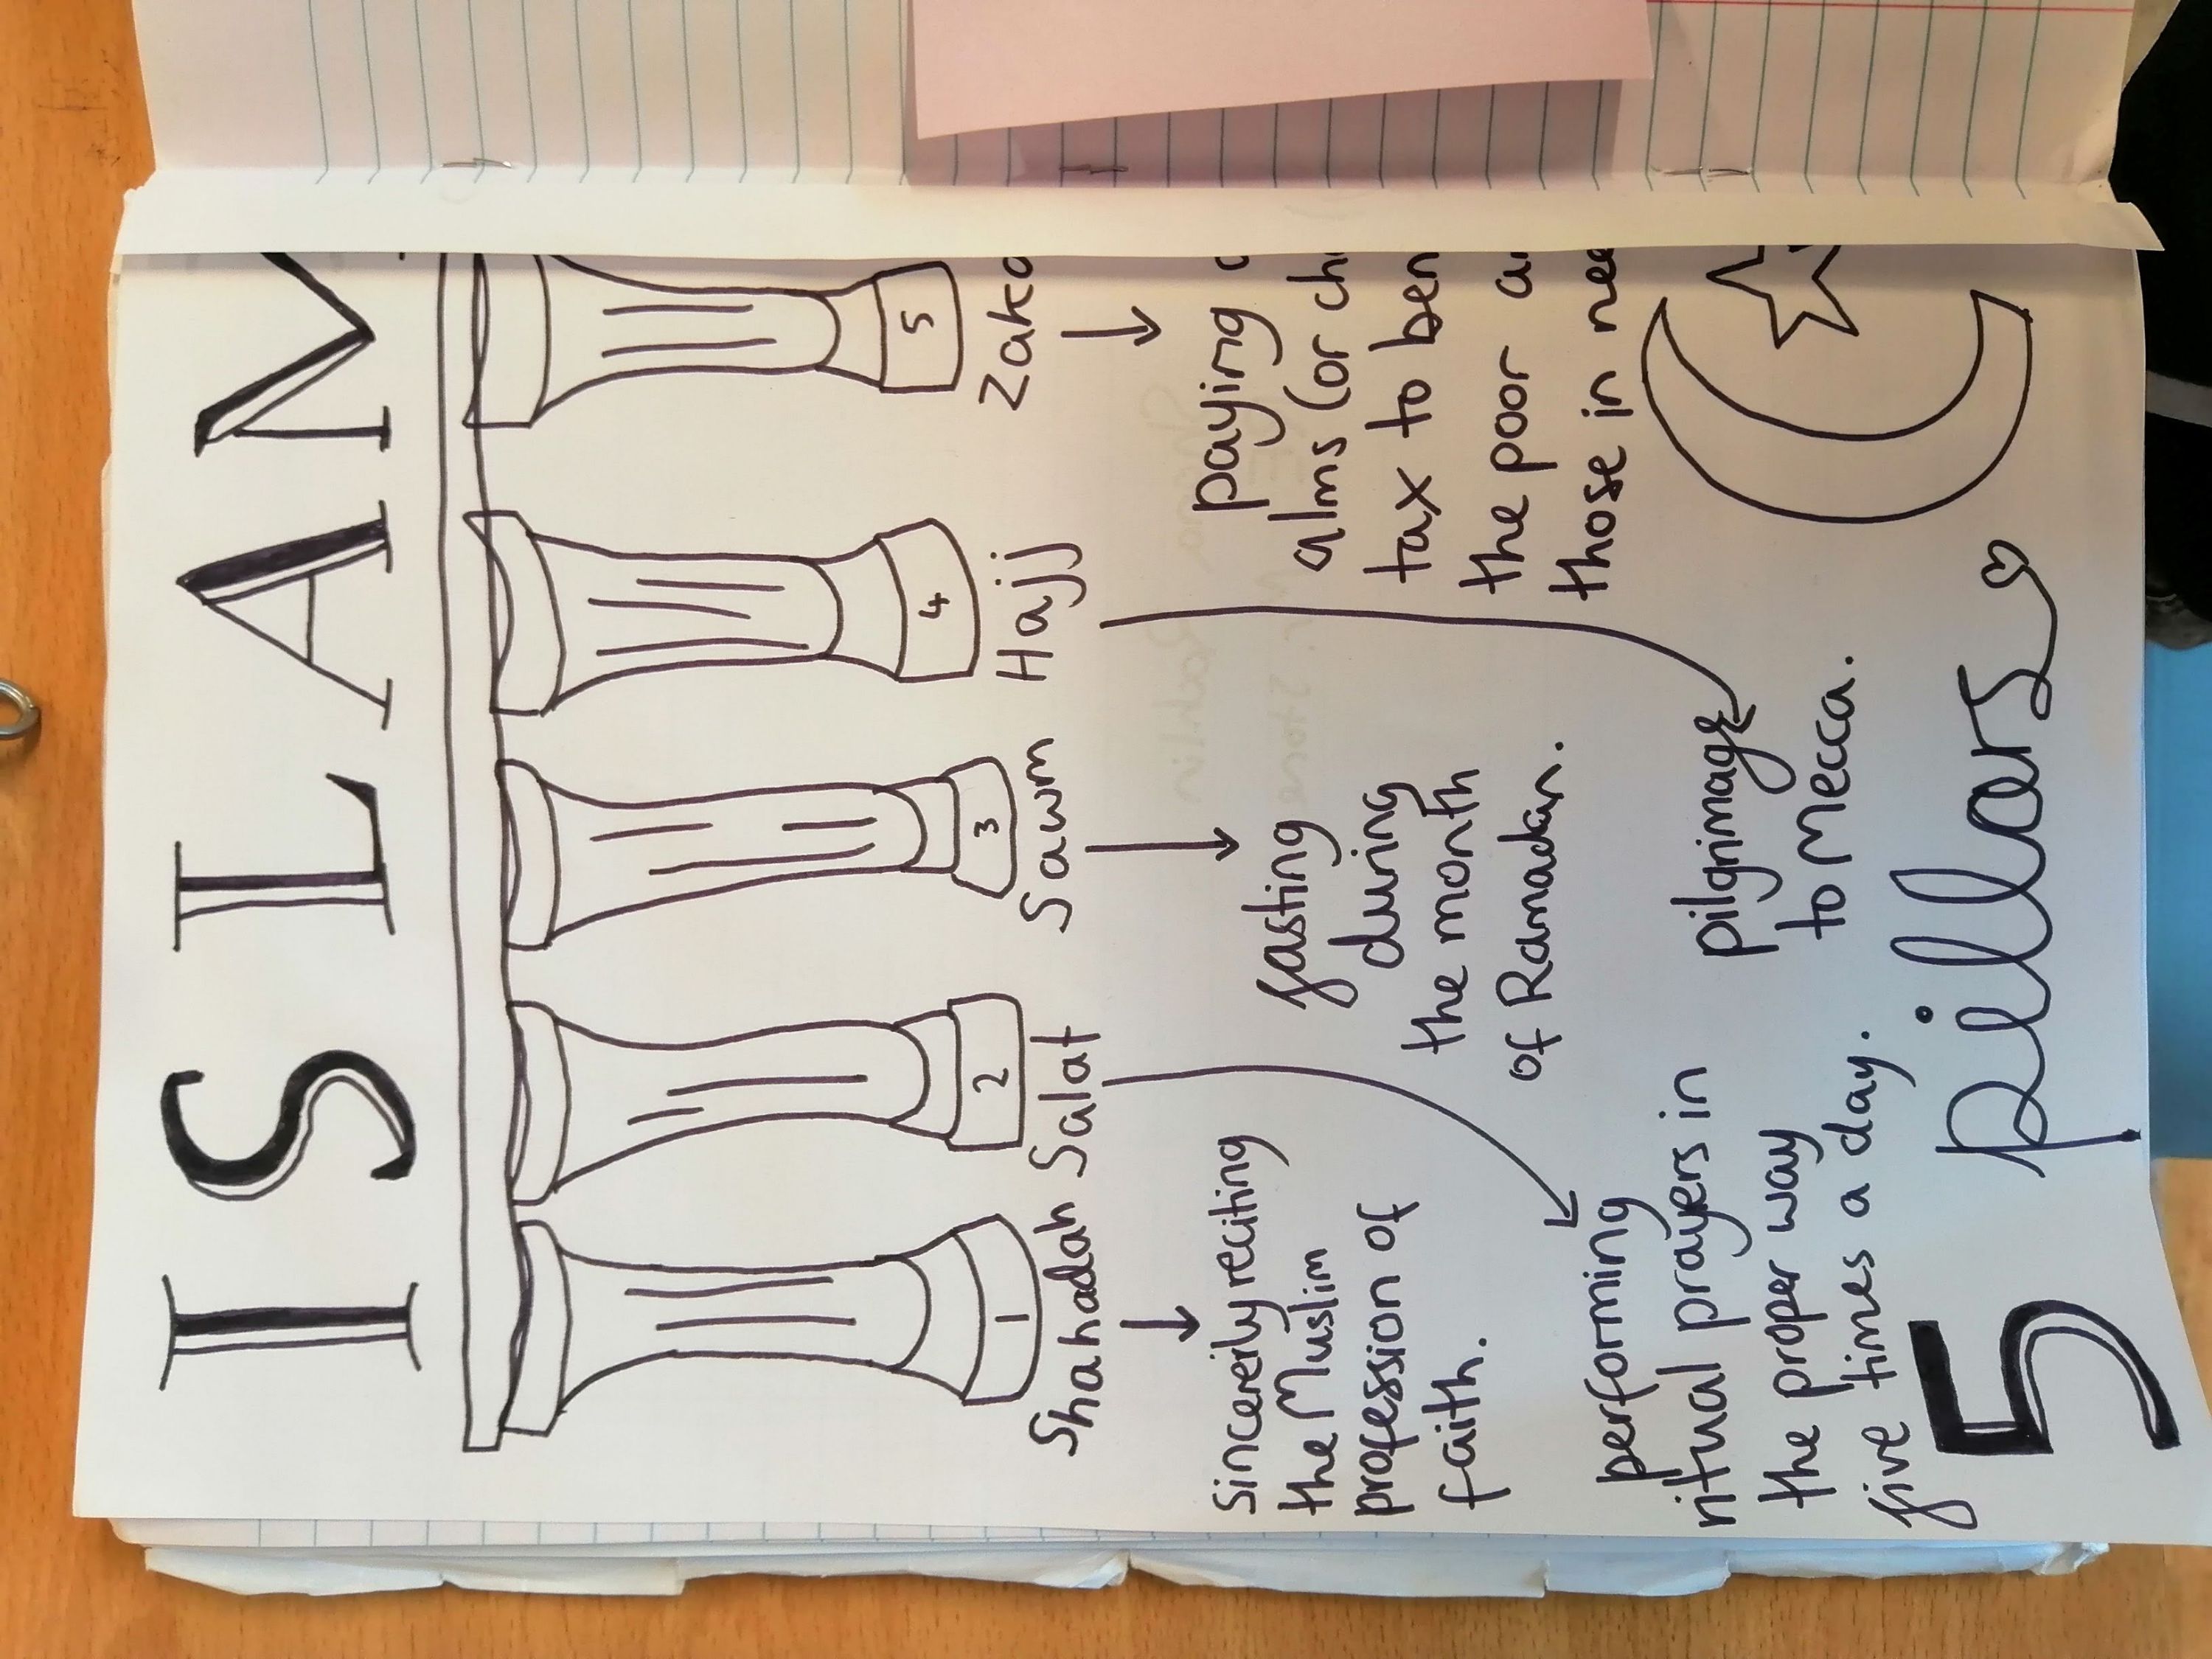 ISLAM
1 2 3 4 5
Shahadah Salat Sawm Hajj Zaka
Sincerely reciting
the Muslim
profession of
faith.
performing
ritual prayers in
the proper way
five times a day.
fasting
during
the month
of Ramadan.
pilgrimage
to Mecca.
paying
alms (or
tax to
the poor
those in
5 pillars